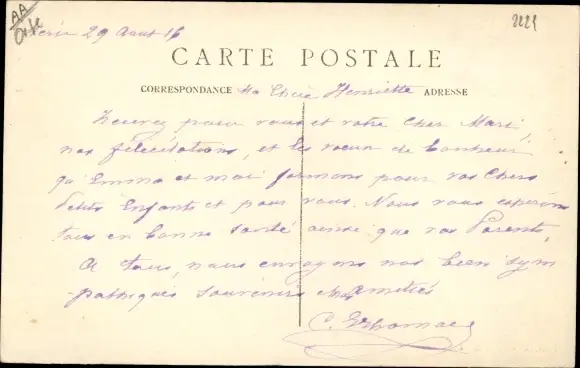 AA
2221
29 Aout 16
CARTE POSTALE
CORRESPONDANCE Ma Chère Henriette ADRESSE
Heureux pour vous et votre Cher Mari,
nos félicitations, et les voeux de bonheur
qu'Emma et moi formons pour vos Chers
Petits Enfants et pour vous. Nous vous espérons
tous en bonne santé ainsi que vos Parents,
A tous, nous envoyons nos bien sym
pathiques souvenirs amitiés
C.